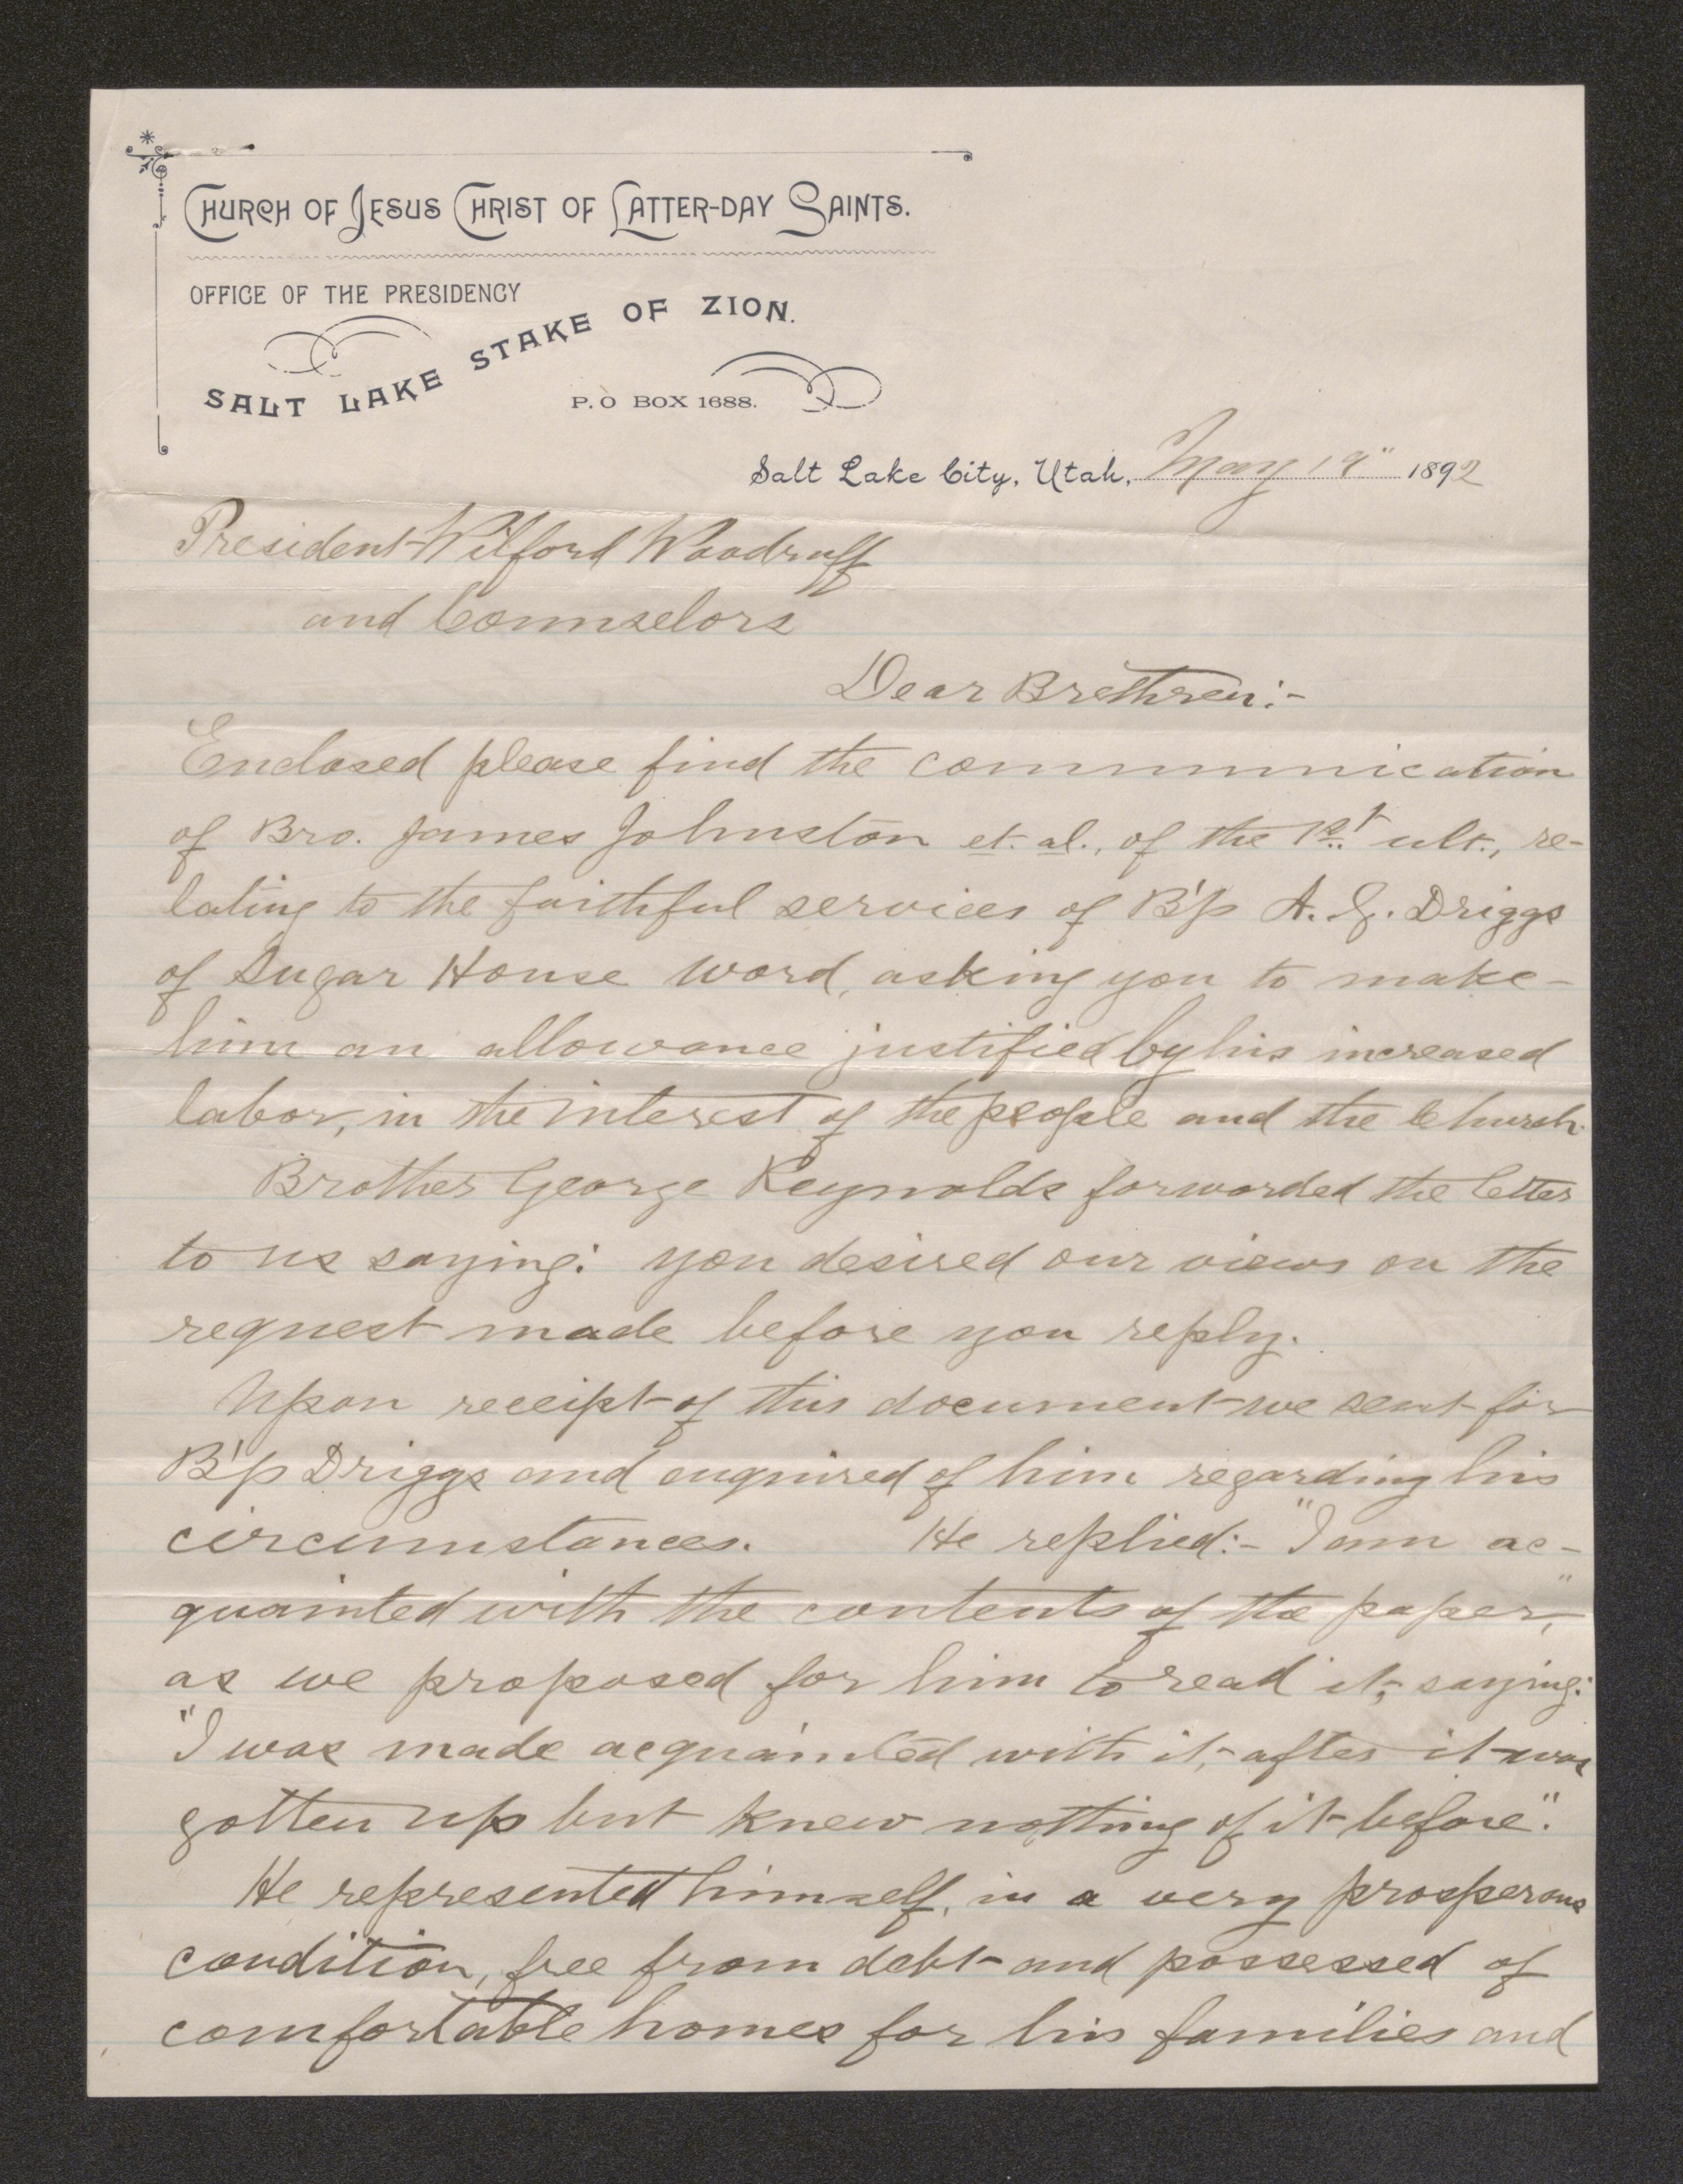 CHURCH OF JESUS CHRIST OF LATTER-DAY SAINTS.
OFFICE OF THE PRESIDENCY
SALT LAKE STAKE OF ZION.
P.O BOX 1688.
Salt Lake City, Utah, May 19" 1892
President Wilford Woodruff
and Counselors
Dear Brethren:-
Enclosed please find the communication
of Bro. James Johnston et. al., of the 1st ult., re-
lating to the faithful services of B'p A. G. Driggs
of Sugar House Ward, asking you to make
him an allowance justified by his increased
labor, in the interest of the people and the Church.
Brother George Reynolds forwarded the letter
to us saying: you desired our views on the
request made before you reply.
Upon receipt of this document we sent for
B'p Driggs and enquired of him regarding his
circumstances. He replied:- "I am ac-
quainted with the contents of the paper,"
as we proposed for him to read it, saying:
"I was made acquainted with it, after it was
gotten up but knew nothing of it before."
He represented himself, in a very prosperous
condition, free from debt and possessed of
comfortable homes for his families and